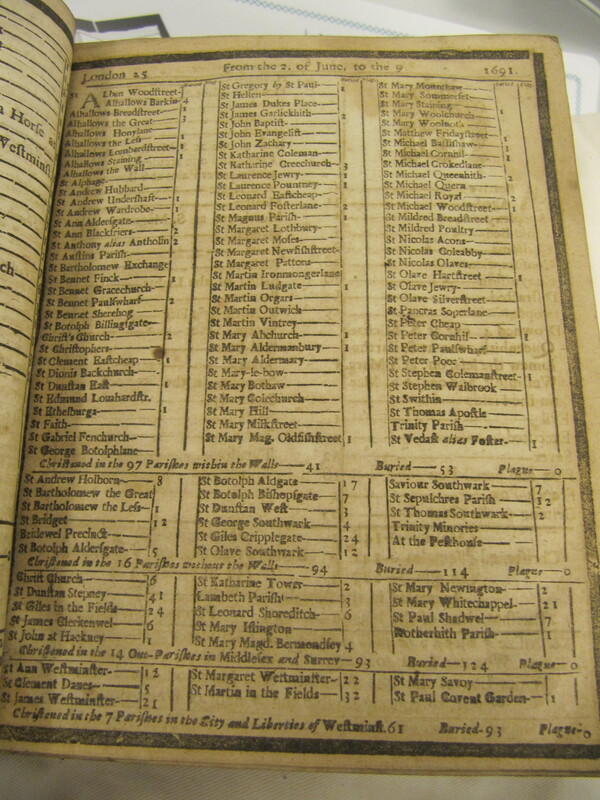 London 25 From the 2. of June, to the 9 1691.
St Alban Woodstreet
Alhallows Barkin 4
Alhallows Breadstreet 1
Alhallows the Great 3
Alhallows Honylane
Alhallows the Less 1
Alhallows Lombardstreet 1
Alhallows Staining 1
Alhallows the Wall
St Alphage
St Andrew Hubbard
St Andrew Undershaft 1
St Andrew Wardrobe 1
St Ann Aldersgate
St Ann Blackfriers 2
St Anthony alias Antholin 2
St Austins Parish
St Bartholomew Exchange
St Bennet Finck 1
St Bennet Gracechurch
St Bennet Paulswharf 2
St Bennet Sherehog
St Botolph Billingsgate
Christ's Church 2
St Christophers
St Clement Eastcheap 1
St Dionis Backchurch
St Dunstan East 1
St Edmund Lombardstr.
St Ethelburga 1
St Faith
St Gabriel Fenchurch
St George Botolphlane
St Gregory by St Paul 1
St Hellen
St James Dukes Place
St James Garlickhith 2
St John Baptist
St John Evangelist
St John Zachary
St Katharine Coleman
St Katharine Creechurch 3
St Laurence Jewry 1
St Laurence Pountney 1
St Leonard Eastcheap
St Leonard Fosterlane 2
St Magnus Parish 1
St Margaret Lothbury
St Margaret Moses
St Margaret Newfishstreet
St Margaret Pattons
St Martin Ironmongerlane
St Martin Ludgate 1
St Martin Orgars
St Martin Outwich
St Martin Vintrey
St Mary Abchurch 1
St Mary Aldermanbury 1
St Mary Aldermary
St Mary-le-bow
St Mary Bothaw
St Mary Colechurch
St Mary Hill
St Mary Milkstreet
St Mary Mag. Oldfishstreet 1
St Mary Mounthaw
St Mary Sommerset
St Mary Staining
St Mary Woolchurch 1
St Mary Woolnoth
St Matthew Fridaystreet 1
St Michael Bassishaw 1
St Michael Cornhil 1
St Michael Crokedlane
St Michael Queenhith 2
St Michael Quern
St Michael Royal 2
St Michael Woodstreet 1
St Mildred Breadstreet
St Mildred Poultry
St Nicolas Acons
St Nicolas Coleabby
St Nicolas Olaves
St Olave Hartstreet 1
St Olave Jewry
St Olave Silverstreet
St Pancras Soperlane
St Peter Cheap
St Peter Cornhil 1
St Peter Paulswharf
St Peter Poor
St Stephen Colemanstreet 1
St Stephen Walbrook
St Swithin
St Thomas Apostle
Trinity Parish
St Vedast alias Foster 1
Christned in the 97 Parishes within the Walls 41 Buried 53 Plague 0
St Andrew Holborn 8
St Bartholomew the Great
St Bartholomew the Less 1
St Bridget 12
Bridewel Precinct
St Botolph Aldersgate 5
St Botolph Aldgate 17
St Botolph Bishopsgate 7
St Dunstan West 3
St George Southwark 4
St Giles Cripplegate 24
St Olave Southwark 12
Saviour Southwark 7
St Sepulchres Parish 12
St Thomas Southwark 2
Trinity Minories
At the Pesthouse
Christned in the 16 Parishes without the Walls 94 Buried 114 Plague 0
Christ Church 6
St Dunstan Stepney 41
St Giles in the Fields 24
St James Clerkenwel 6
St John at Hackney 1
St Katharine Tower 2
Lambeth Parish 3
St Leonard Shoreditch 6
St Mary Islington
St Mary Magd. Bermondsey 4
St Mary Newington 2
St Mary Whitechappel 21
St Paul Shadwel 7
Rotherhith Parish 1
Christned in the 14 Out-Parishes in Middlesex and Surrey 93 Buried 124 Plague 0
St Ann Westminster 12
St Clement Danes 5
St James Westminster 21
St Margaret Westminster 22
St Martin in the Fields 32
St Mary Savoy
St Paul Covent Garden 1
Christned in the 7 Parishes in the City and Liberties of Westminst. 61 Buried 93 Plague 0